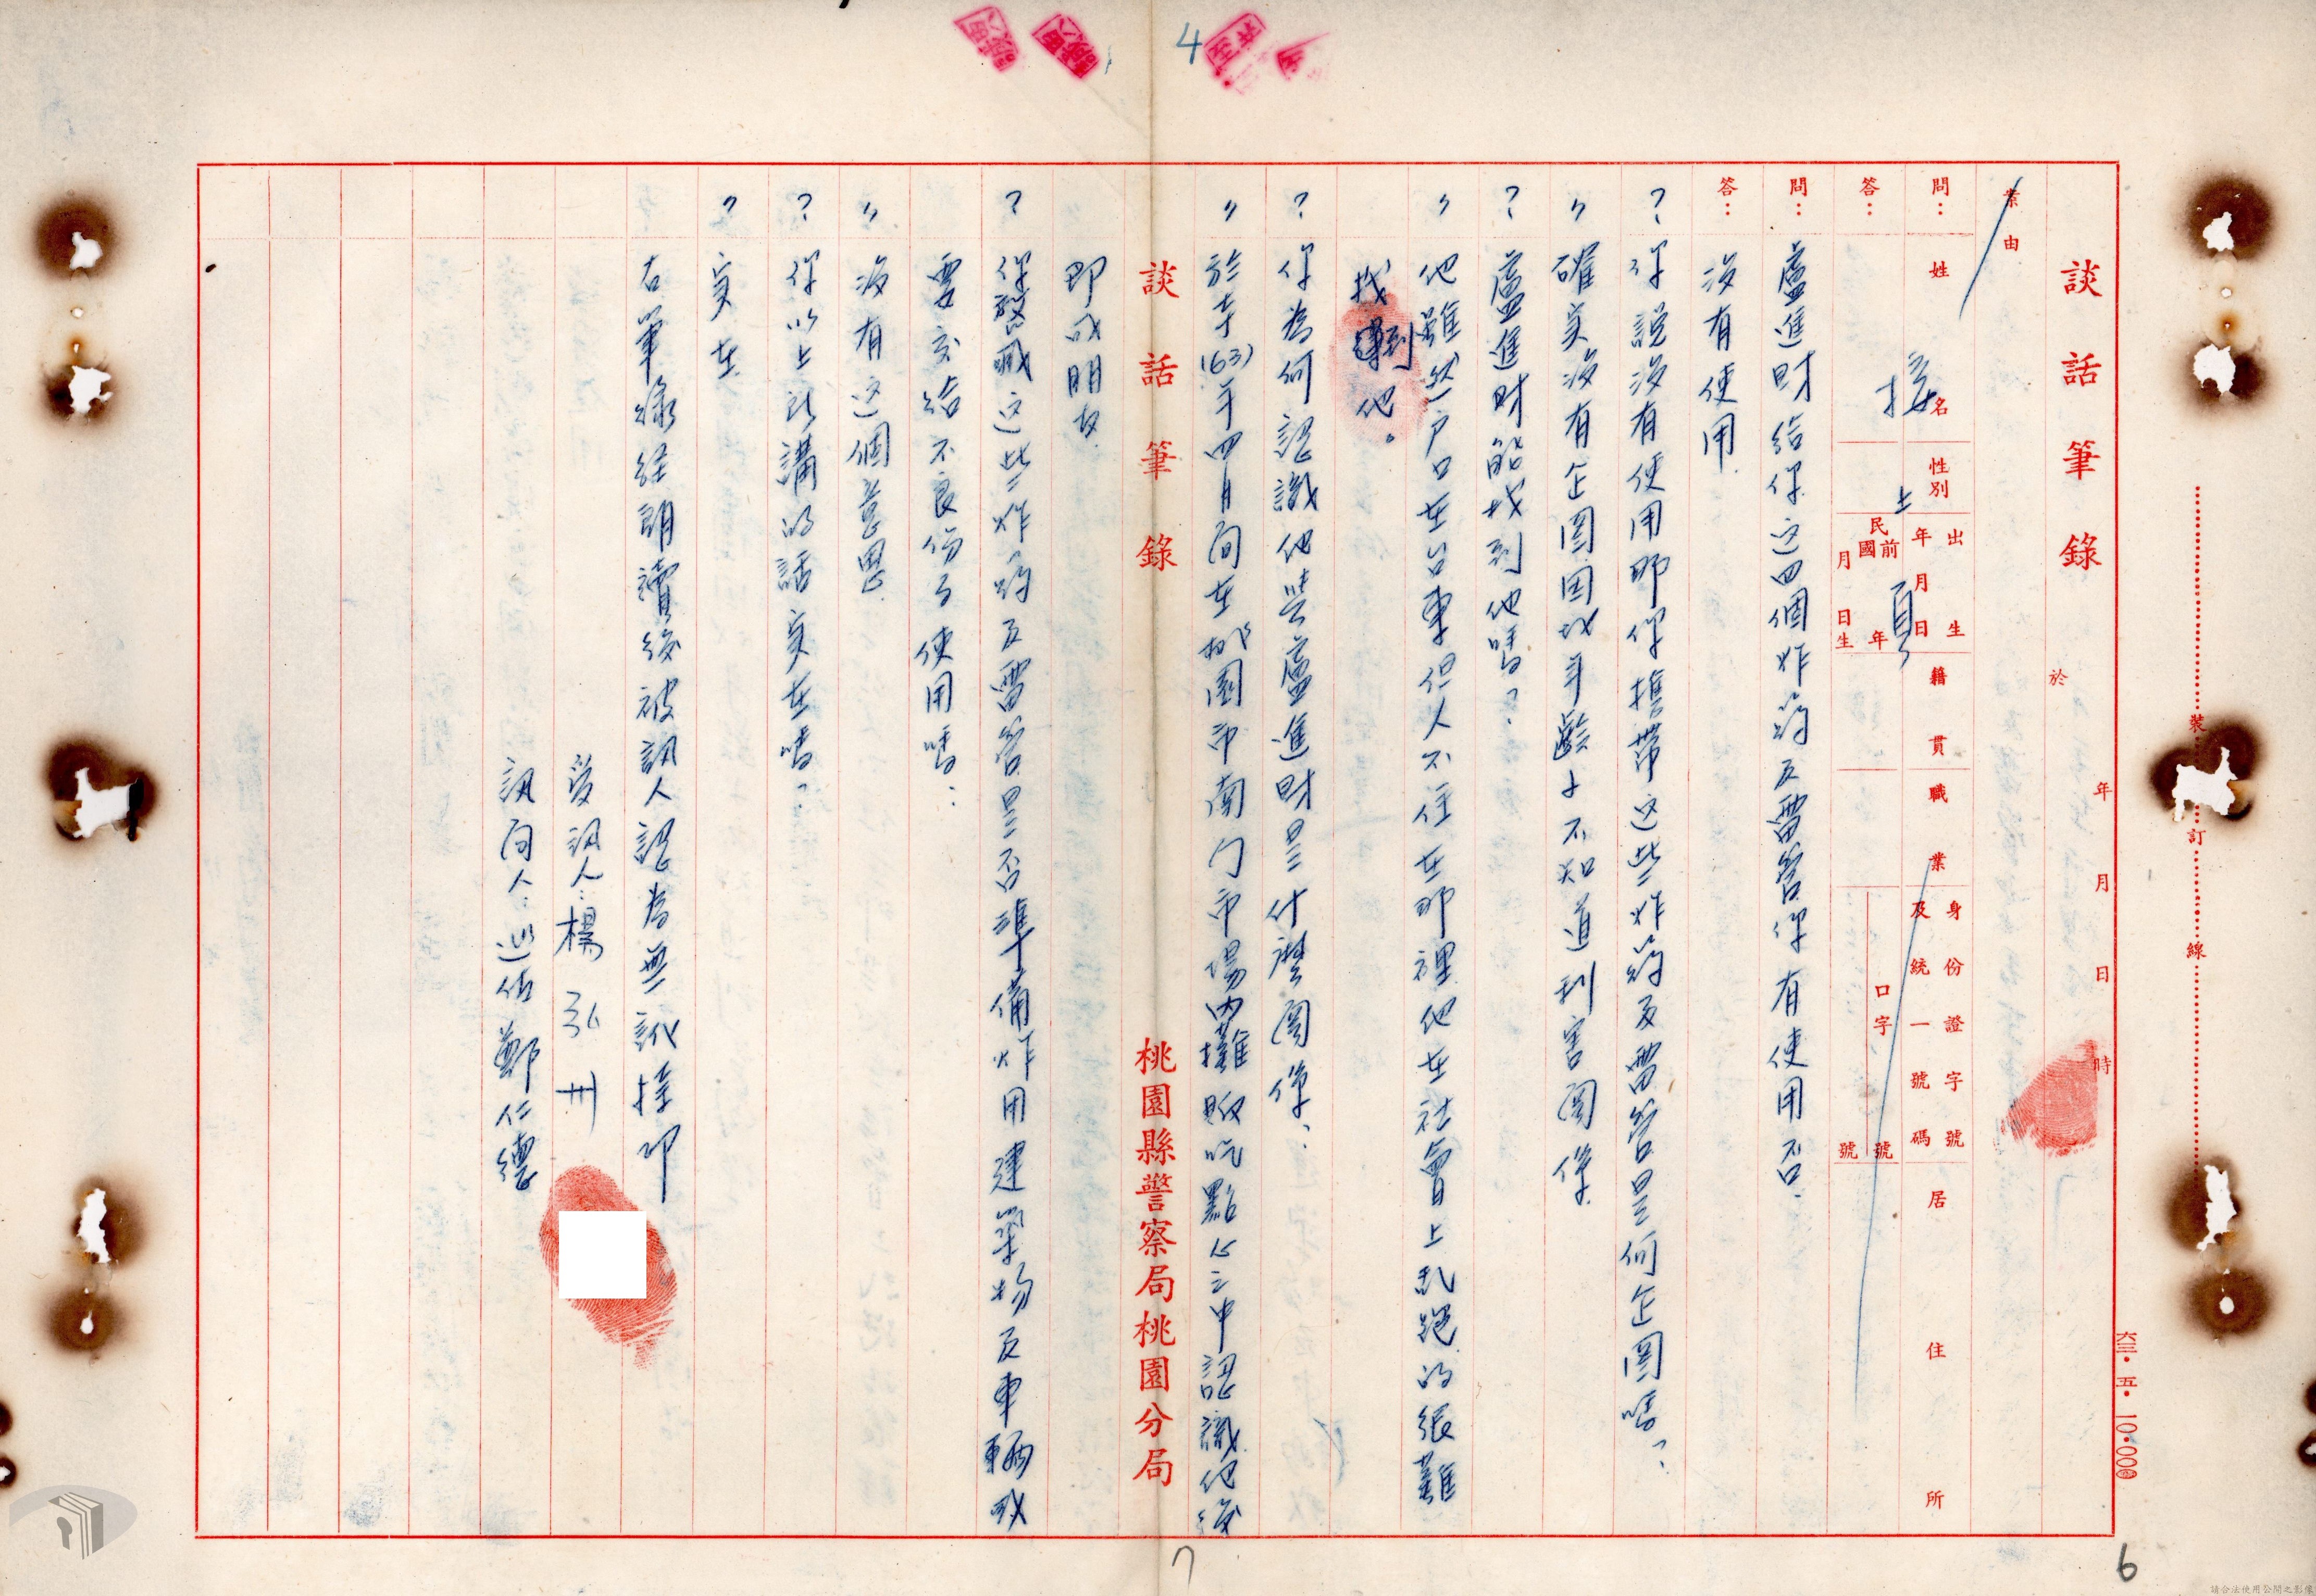 4
談話筆錄
於
年 月 日 時
案由
問：姓名 性別 出生年月日 籍貫 職業 身份證字號及統一號碼 居住所
接上頁
答：
民前國 年 月 日生
口字 號 號
問：盧進財給你這四個炸药及雷管你有使用否
答：沒有使用
？你說沒有使用那你携带这些炸药及雷管是何企圖嗎？
〃確实沒有企圖因我年齡小不知道利害関係
？盧進財能找到他嗎？
〃他雖然户口在台東但人不住在那裡他在社會上乱跑的很難
找到他。
？你為何認識他與盧進財是什麼関係？
〃於本(63)年四月間在桃園市南门市場内攤販吃點心之中認識他後
談話筆錄
桃園縣警察局桃園分局
即成朋友
？你整職这些炸药及雷管是否準備炸用建築物及車輛或
要交給不良份子使用嗎？
〃沒有这個意思
？你以上所講的話实在嗎？
〃实在
右筆錄経朗讀後被訊人認為無訛捺印
受訊人：楊弘州
訊問人：巡佐鄭仁德
裝
訂
線
六三・五・10・000
7
6
請合法使用公開之影像